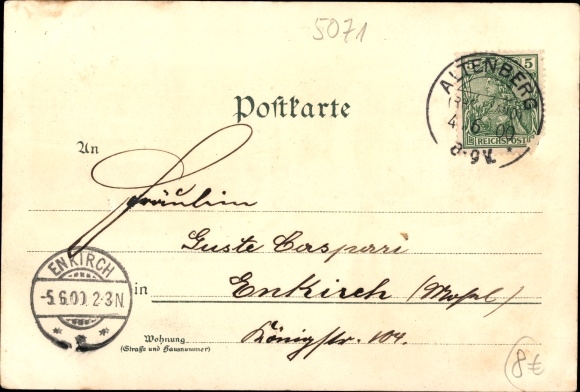 5071
5
ALTENBERG
4.6.00
8-9V.
REICHSPOST
Postkarte
An
Fräulein
Guste Caspari
in Enkirch (Mosel)
Königstr. 104.
Wohnung
(Straße und Hausnummer)
ENKIRCH
-5.6.00.2-3N
8€